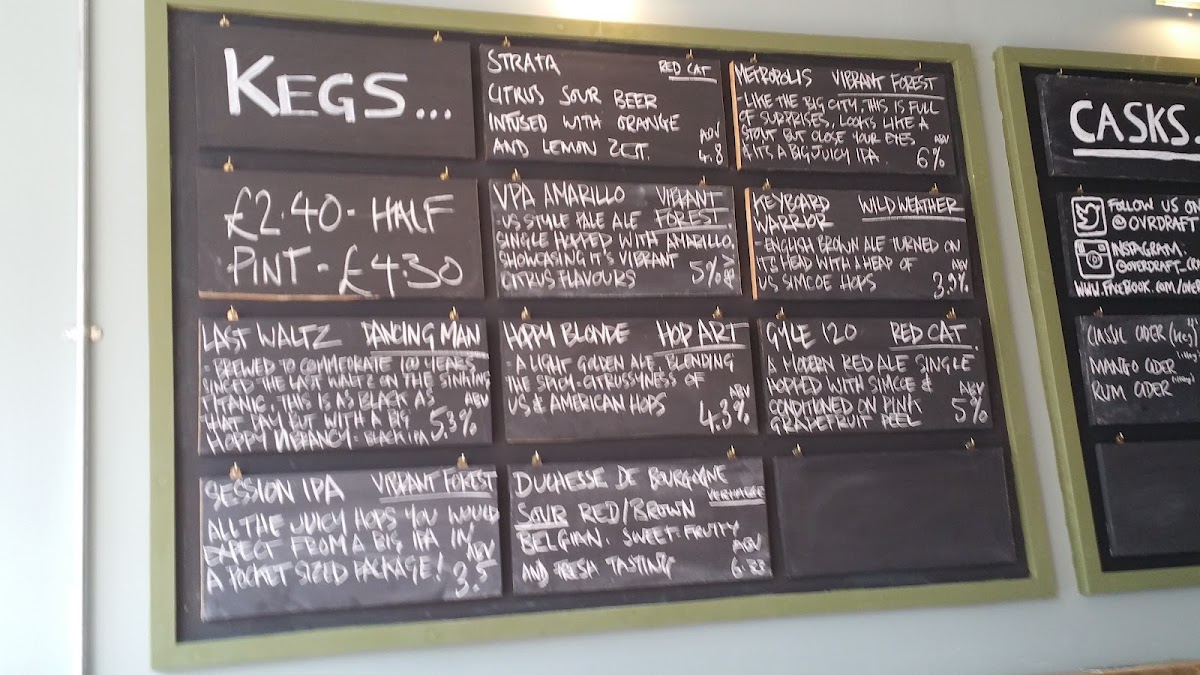 KEGS...
£2.40 - HALF
PINT - £4.30
STRATA RED CAT
CITRUS SOUR BEER
INFUSED WITH ORANGE
AND LEMON ZEST. ABV
4.8
METROPOLIS VIBRANT FOREST
- LIKE THE BIG CITY, THIS IS FULL
OF SURPRISES, LOOKS LIKE A
STOUT BUT CLOSE YOUR EYES ABV
& ITS A BIG JUICY IPA 6%
VPA AMARILLO VIBRANT
- US STYLE PALE ALE FOREST
SINGLE HOPPED WITH AMARILLO,
SHOWCASING IT'S VIBRANT
CITRUS FLAVOURS 5%
KEYBOARD WILD WEATHER
WARRIOR
- ENGLISH BROWN ALE TURNED ON
ITS HEAD WITH A HEAP OF ABV
US SIMCOE HOPS 3.9%
LAST WALTZ DANCING MAN
- BREWED TO COMMEMORATE 100 YEARS
SINCE THE LAST WALTZ ON THE SINKING
TITANIC, THIS IS AS BLACK AS ABV
THAT DAY BUT WITH A BIG 5.3%
HOPPY VIBRANCY - BLACK IPA
HOPPY BLONDE HOP ART
- A LIGHT GOLDEN ALE, BLENDING
THE SPICY-CITRUSSYNESS OF
US & AMERICAN HOPS ABV
4.3%
GYLE 120 RED CAT
A MODERN RED ALE SINGLE
HOPPED WITH SIMCOE & ABV
CONDITIONED ON PINK 5%
GRAPEFRUIT PEEL
SESSION IPA VIBRANT FOREST
ALL THE JUICY HOPS YOU WOULD
EXPECT FROM A BIG IPA IN ABV
A POCKET SIZED PACKAGE! 3.5
DUCHESSE DE BOURGOGNE
VERHAEGE
SOUR RED/BROWN
BELGIAN. SWEET-FRUITY
AND FRESH TASTING ABV
6.23
CASKS
FOLLOW US ON
@OVRDRAFT
INSTAGRAM
@OVERDRAFT_
WWW.FACEBOOK.COM/OVER
CIDER
MANGO CIDER
RUM CIDER